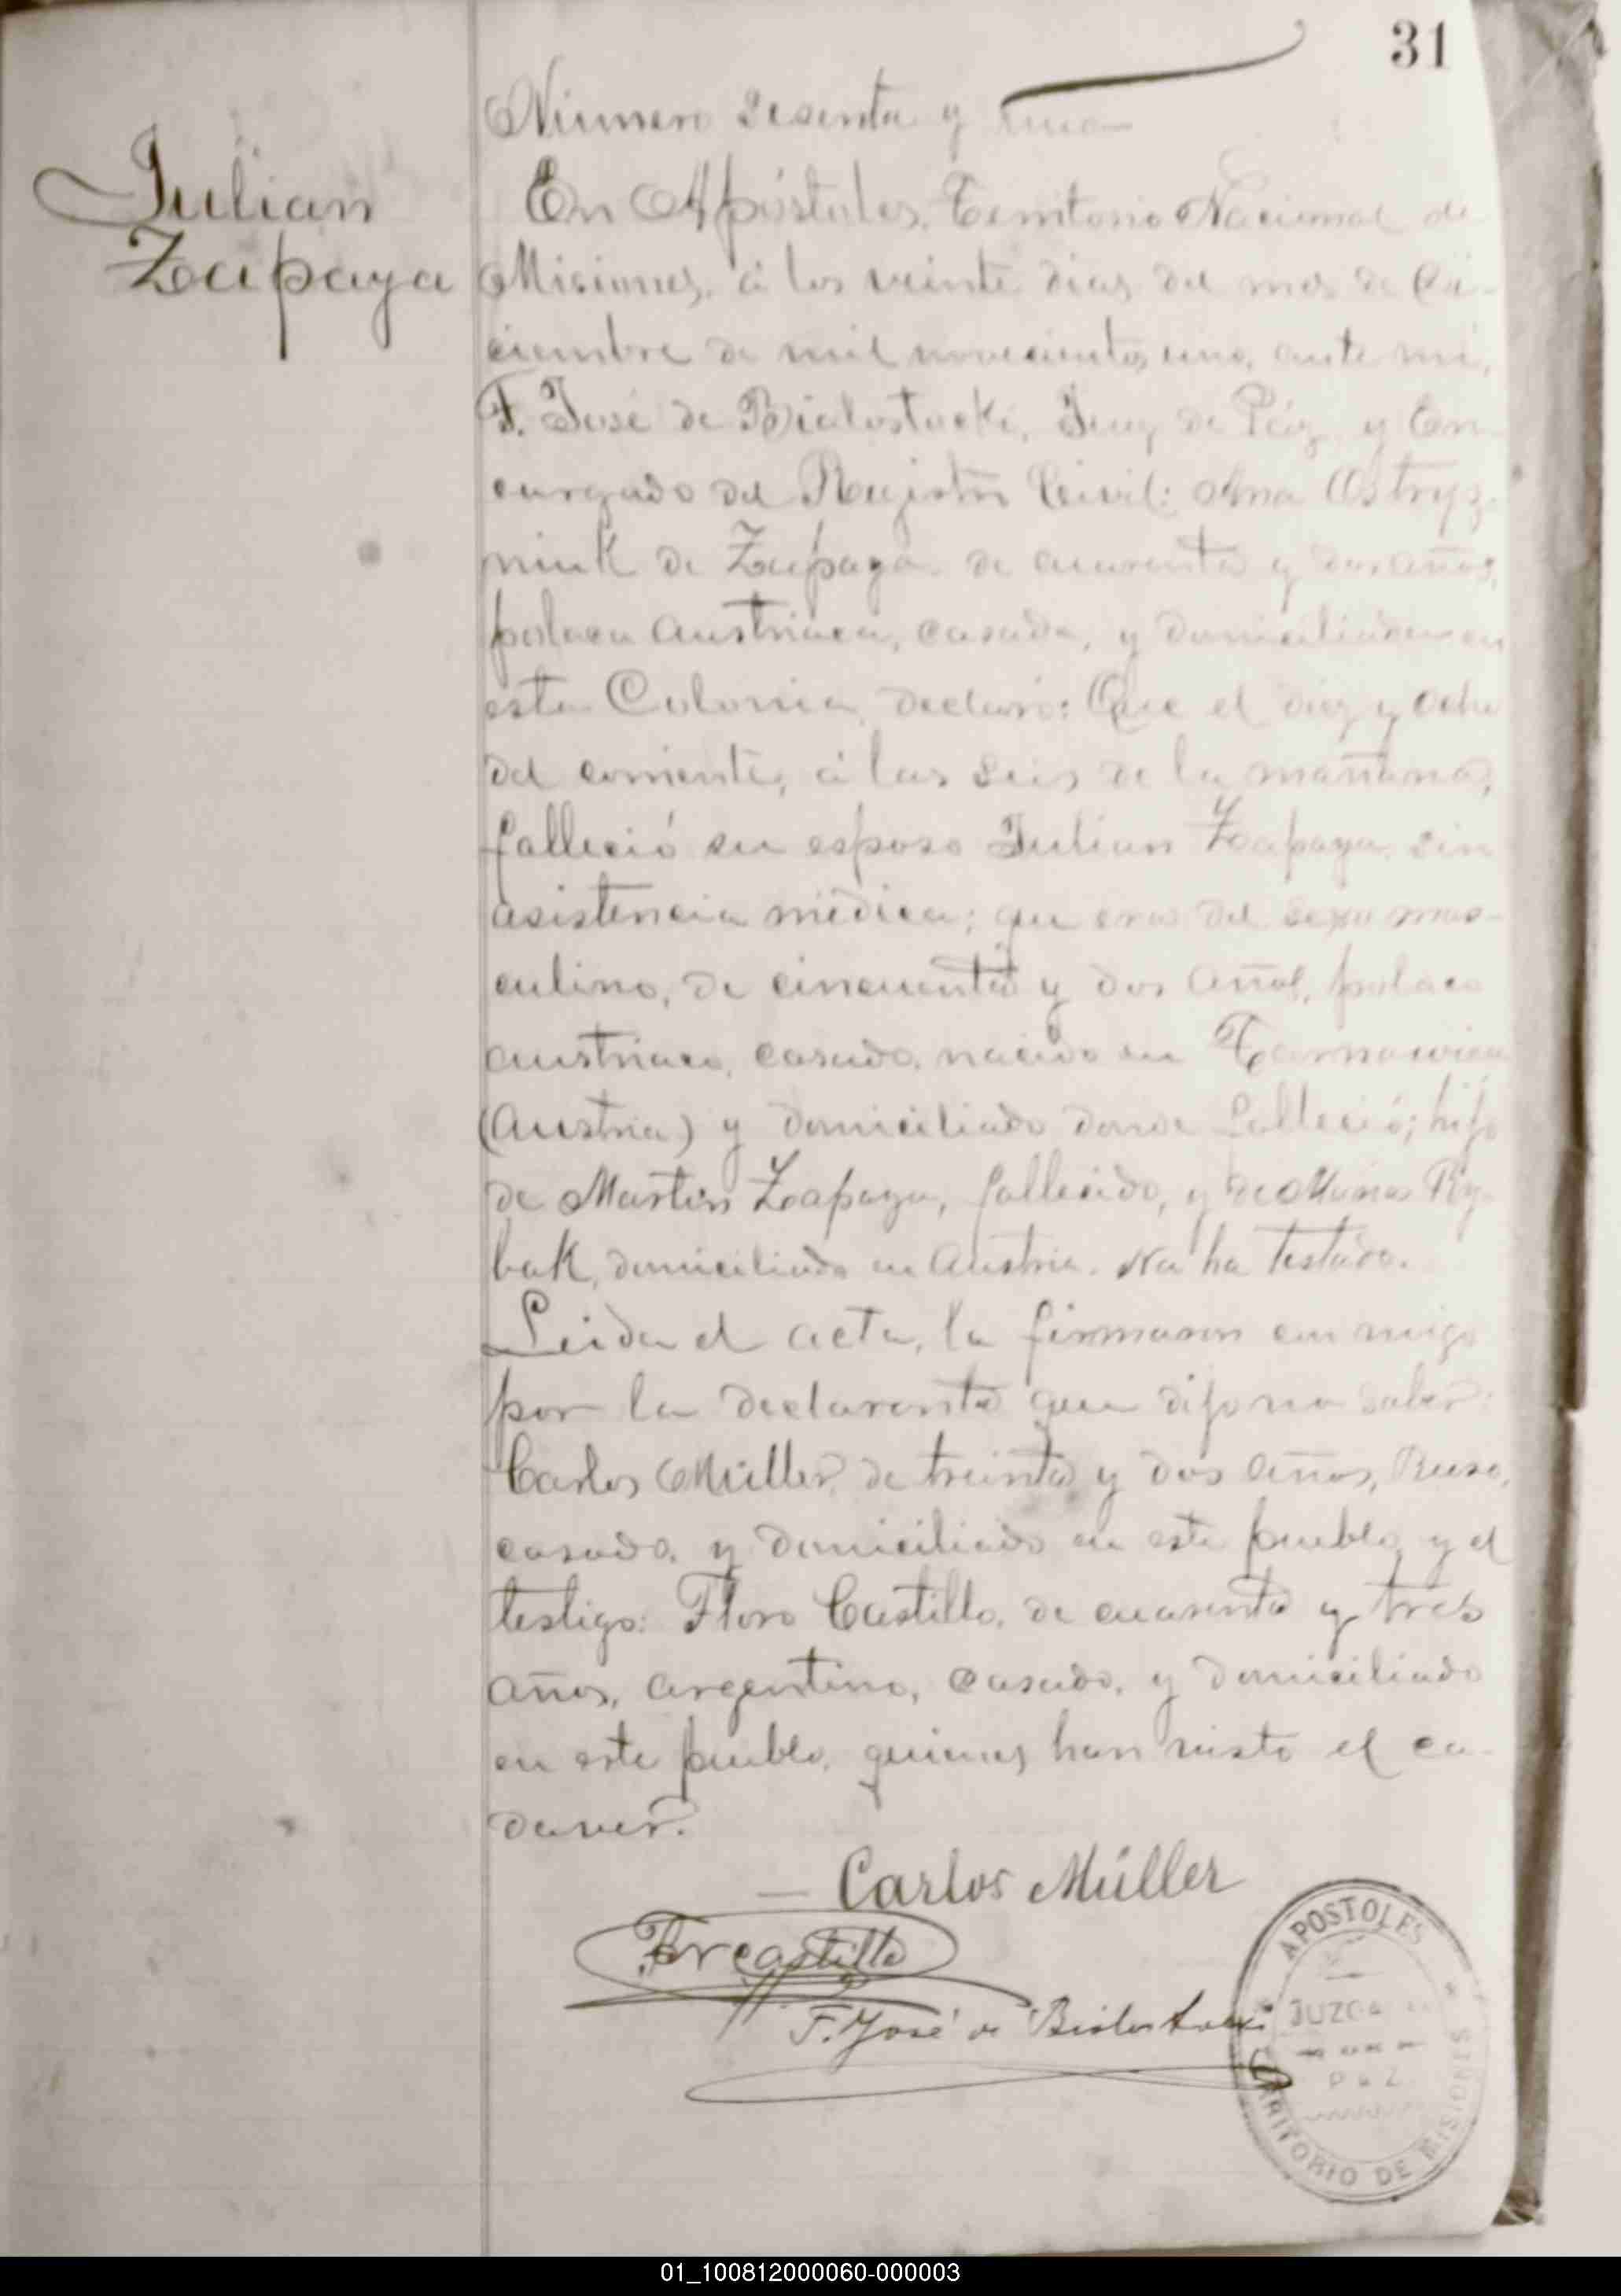 31
Número sesenta y uno
Julian
Zapaya
En Apóstoles, Territorio Nacional de
Misiones, á los veinte dias del mes de Di-
ciembre de mil novecientos uno, ante mi,
F. José de Bialostocki, Juez de Páz y En-
cargado del Registro Civil: Ana Ostryz-
niuk de Zapaya de cuarenta y dos años,
polaca austriaca, casada, y domiciliada en
esta Colonia, declaró: Que el diez y ocho
del corriente, á las seis de la mañana,
falleció su esposo Julian Zapaya, sin
asistencia médica; que era del sexo mas-
culino, de cincuenta y dos años, polaco
austriaco, casado, nacido en Tarnawica
(Austria) y domiciliado donde falleció; hijo
de Martin Zapaya, fallecido, y de Maria Ry-
bak, domiciliada en Austria. No ha testado.
Leida el acta, la firmaron conmigo
por la declarante que dijo no saber:
Carlos Müller, de treinta y dos años, Ruso,
casado, y domiciliado en este pueblo, y el
testigo: Floro Castillo, de cuarenta y tres
años, argentino, casado, y domiciliado
en este pueblo, quienes han visto el ca-
daver.
Carlos Müller
Flor Castillo
F. José de Bialostocki
APOSTOLES
JUZGADO
DE
PAZ
TERRITORIO DE MISIONES
01_100812000060-000003